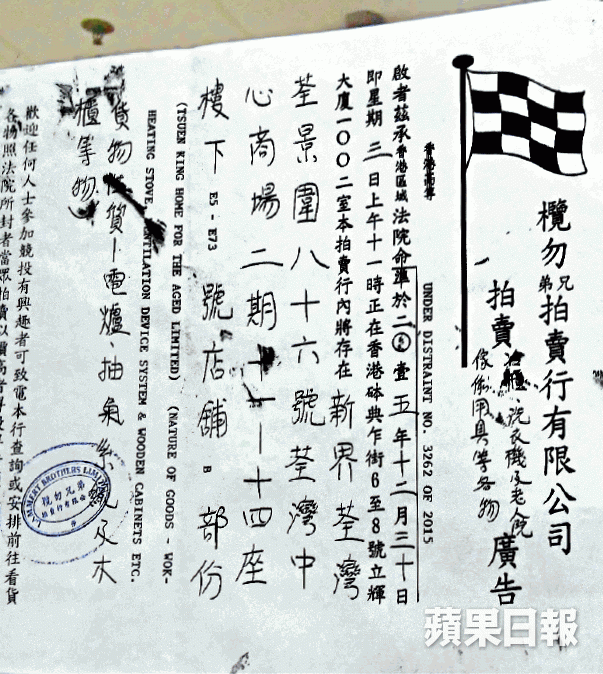 欖勿兄弟拍賣行有限公司
拍賣冷櫃洗衣機及老人院傢俬用具等各物廣告
UNDER DISTRAINT NO. 3262 OF 2015
啟者茲承香港區域法院命準於二〇壹五年十二月三十日
即星期三日上午十一時正在香港砵典乍街6至8號立輝
大廈一〇〇二室本拍賣行內將存在新界荃灣
荃景圍八十六號荃灣中
心商場二期十一一十四座
樓下E5 - E73號店舖B部份
(TSUEN KING HOME FOR THE AGED LIMITED) (NATURE OF GOODS - WOK-
HEATING STOVE, VENTILATION DEVICE SYSTEM & WOODEN CABINETS ETC.
貨物 電爐、抽氣系統及木
櫃等物)
歡迎任何人士參加競投有興趣者可致電本行查詢或安排前往看貨
各物照法院所封者當眾拍賣以價高者得
LAMMERT BROTHERS LIMITED
欖勿兄弟
拍賣行有限公司
蘋果日報